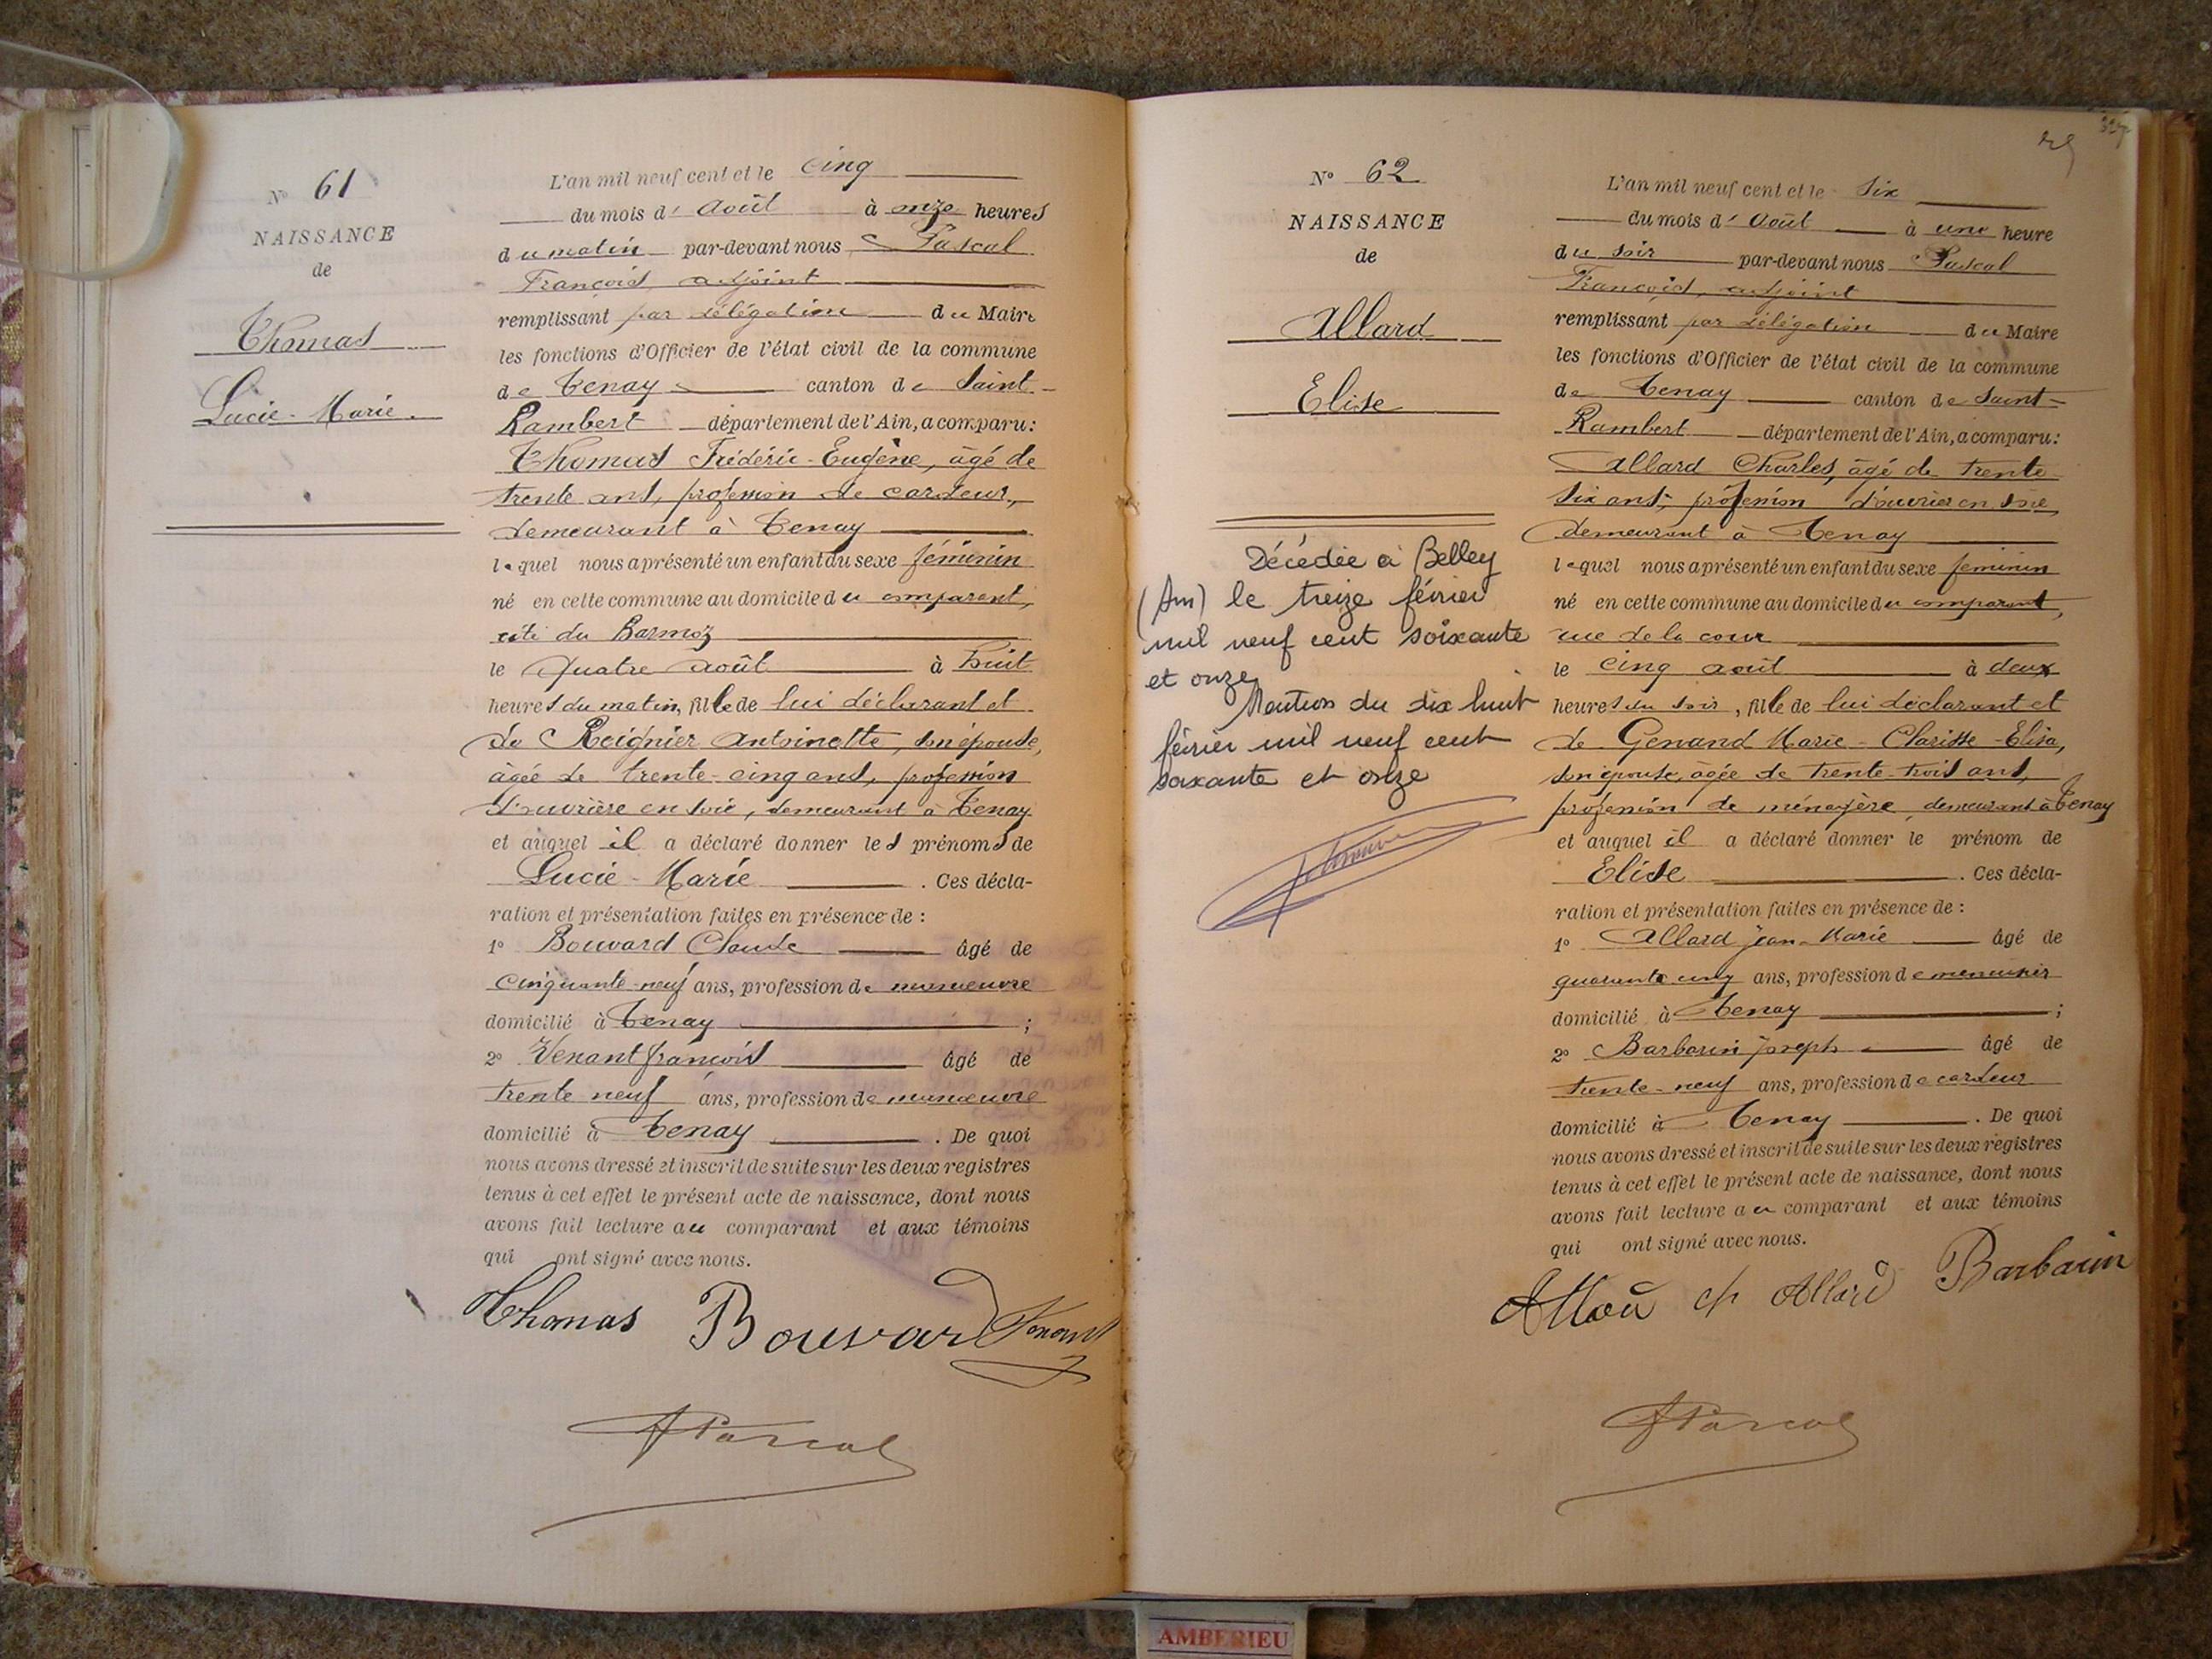 Nº 61
NAISSANCE
de
Thomas
Lucie-Marie.
L'an mil neuf cent et le cinq
du mois d' Août à onze heures
du matin par-devant nous Pascal
François, adjoint
remplissant par délégation du Maire
les fonctions d'Officier de l'état civil de la commune
de Tenay canton de Saint-
Rambert département de l'Ain, a comparu:
Thomas Frédéric-Eugène, âgé de
trente ans, profession de cardeur,
demeurant à Tenay
lequel nous a présenté un enfant du sexe féminin
né en cette commune au domicile du comparant,
cité du Barmoz
le quatre août à huit
heures du matin, fille de lui déclarant et
de Reignier Antoinette, son épouse,
âgée de trente-cinq ans, profession
d'ouvrière en soie, demeurant à Tenay
et auquel il a déclaré donner les prénoms de
Lucie-Marie . Ces décla-
ration et présentation faites en présence de :
1º Bouvard Claude âgé de
cinquante-neuf ans, profession de manœuvre
domicilié à Tenay ;
2º Venant françois âgé de
trente neuf ans, profession de manœuvre
domicilié à Tenay . De quoi
nous avons dressé et inscrit de suite sur les deux registres
tenus à cet effet le présent acte de naissance, dont nous
avons fait lecture au comparant et aux témoins
qui ont signé avec nous.
Thomas Bouvard Venant
F Pascal
Nº 62
NAISSANCE
de
Allard
Elise
Décédée à Belley
(Ain) le treize février
mil neuf cent soixante
et onze
Mention du dix huit
février mil neuf cent
soixante et onze
29
L'an mil neuf cent et le six
du mois d' Août à une heure
du soir par-devant nous Pascal
François, adjoint
remplissant par délégation du Maire
les fonctions d'Officier de l'état civil de la commune
de Tenay canton de Saint-
Rambert département de l'Ain, a comparu:
Allard Charles, âgé de trente
six ans, profession d'ouvrier en soie,
demeurant à Tenay
lequel nous a présenté un enfant du sexe féminin
né en cette commune au domicile du comparant,
rue de la cour
le cinq août à deux
heures du soir, fille de lui déclarant et
de Genand Marie-Clarisse-Elisa,
son épouse, âgée de trente-trois ans,
profession de ménagère, demeurant à Tenay
et auquel il a déclaré donner le prénom de
Elise . Ces décla-
ration et présentation faites en présence de :
1º Allard Jean-Marie âgé de
quarante cinq ans, profession de menuisier
domicilié à Tenay ;
2º Barbarin Joseph âgé de
trente-neuf ans, profession de cardeur
domicilié à Tenay . De quoi
nous avons dressé et inscrit de suite sur les deux registres
tenus à cet effet le présent acte de naissance, dont nous
avons fait lecture au comparant et aux témoins
qui ont signé avec nous.
ch Allard Barbarin
F Pascal
AMBERIEU